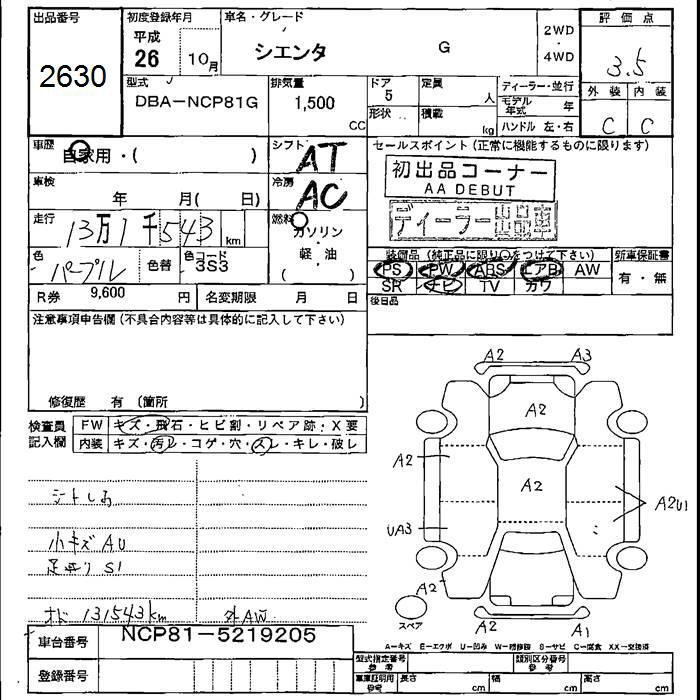 出品番号
2630
初度登録年月
平成
26
10月
車名・グレード
シエンタ
G
2WD
・
4WD
評価点
3.5
型式
DBA-NCP81G
排気量
1,500
CC
ドア
5
形状
定員
人
積載
kg
ディーラー・並行
モデル年式
年
ハンドル 左・右
外装
内装
C
C
車歴
自家用・( )
シフト
AT
車検
年 月( 日)
冷房
AC
走行
13万1千543 km
燃料
ガソリン
・
軽油
( )
色
パープル
色替
色コード
3S3
R券
9,600 円
名変期限 月 日
セールスポイント(正常に機能するものに限ります)
初出品コーナー
AA DEBUT
ディーラー出品車
装備品(純正品に限り○をつけて下さい)
PS PW ABS エアB AW
SR ナビ TV カワ
新車保証書
有・無
後日品
注意事項申告欄(不具合内容等は具体的に記入して下さい)
修復歴 有(箇所
検査員
記入欄
FW
キズ・飛石・ヒビ割・リペア跡・X要
内装
キズ・汚レ・コゲ・穴・スレ・キレ・破レ
小キズ AU
S1
オド 131543km
外AW
A2
A3
A2
A2
A2
A2U1
UA3
A2
A2
A1
スペア
A-キズ E-エクボ U-凹み W-補修跡 S-サビ C-腐食 XX-交換済
車台番号
NCP81-5219205
登録番号
型式指定番号
参考
類別区分番号
参考
車庫証明用
参考
長さ cm
幅 cm
高さ cm